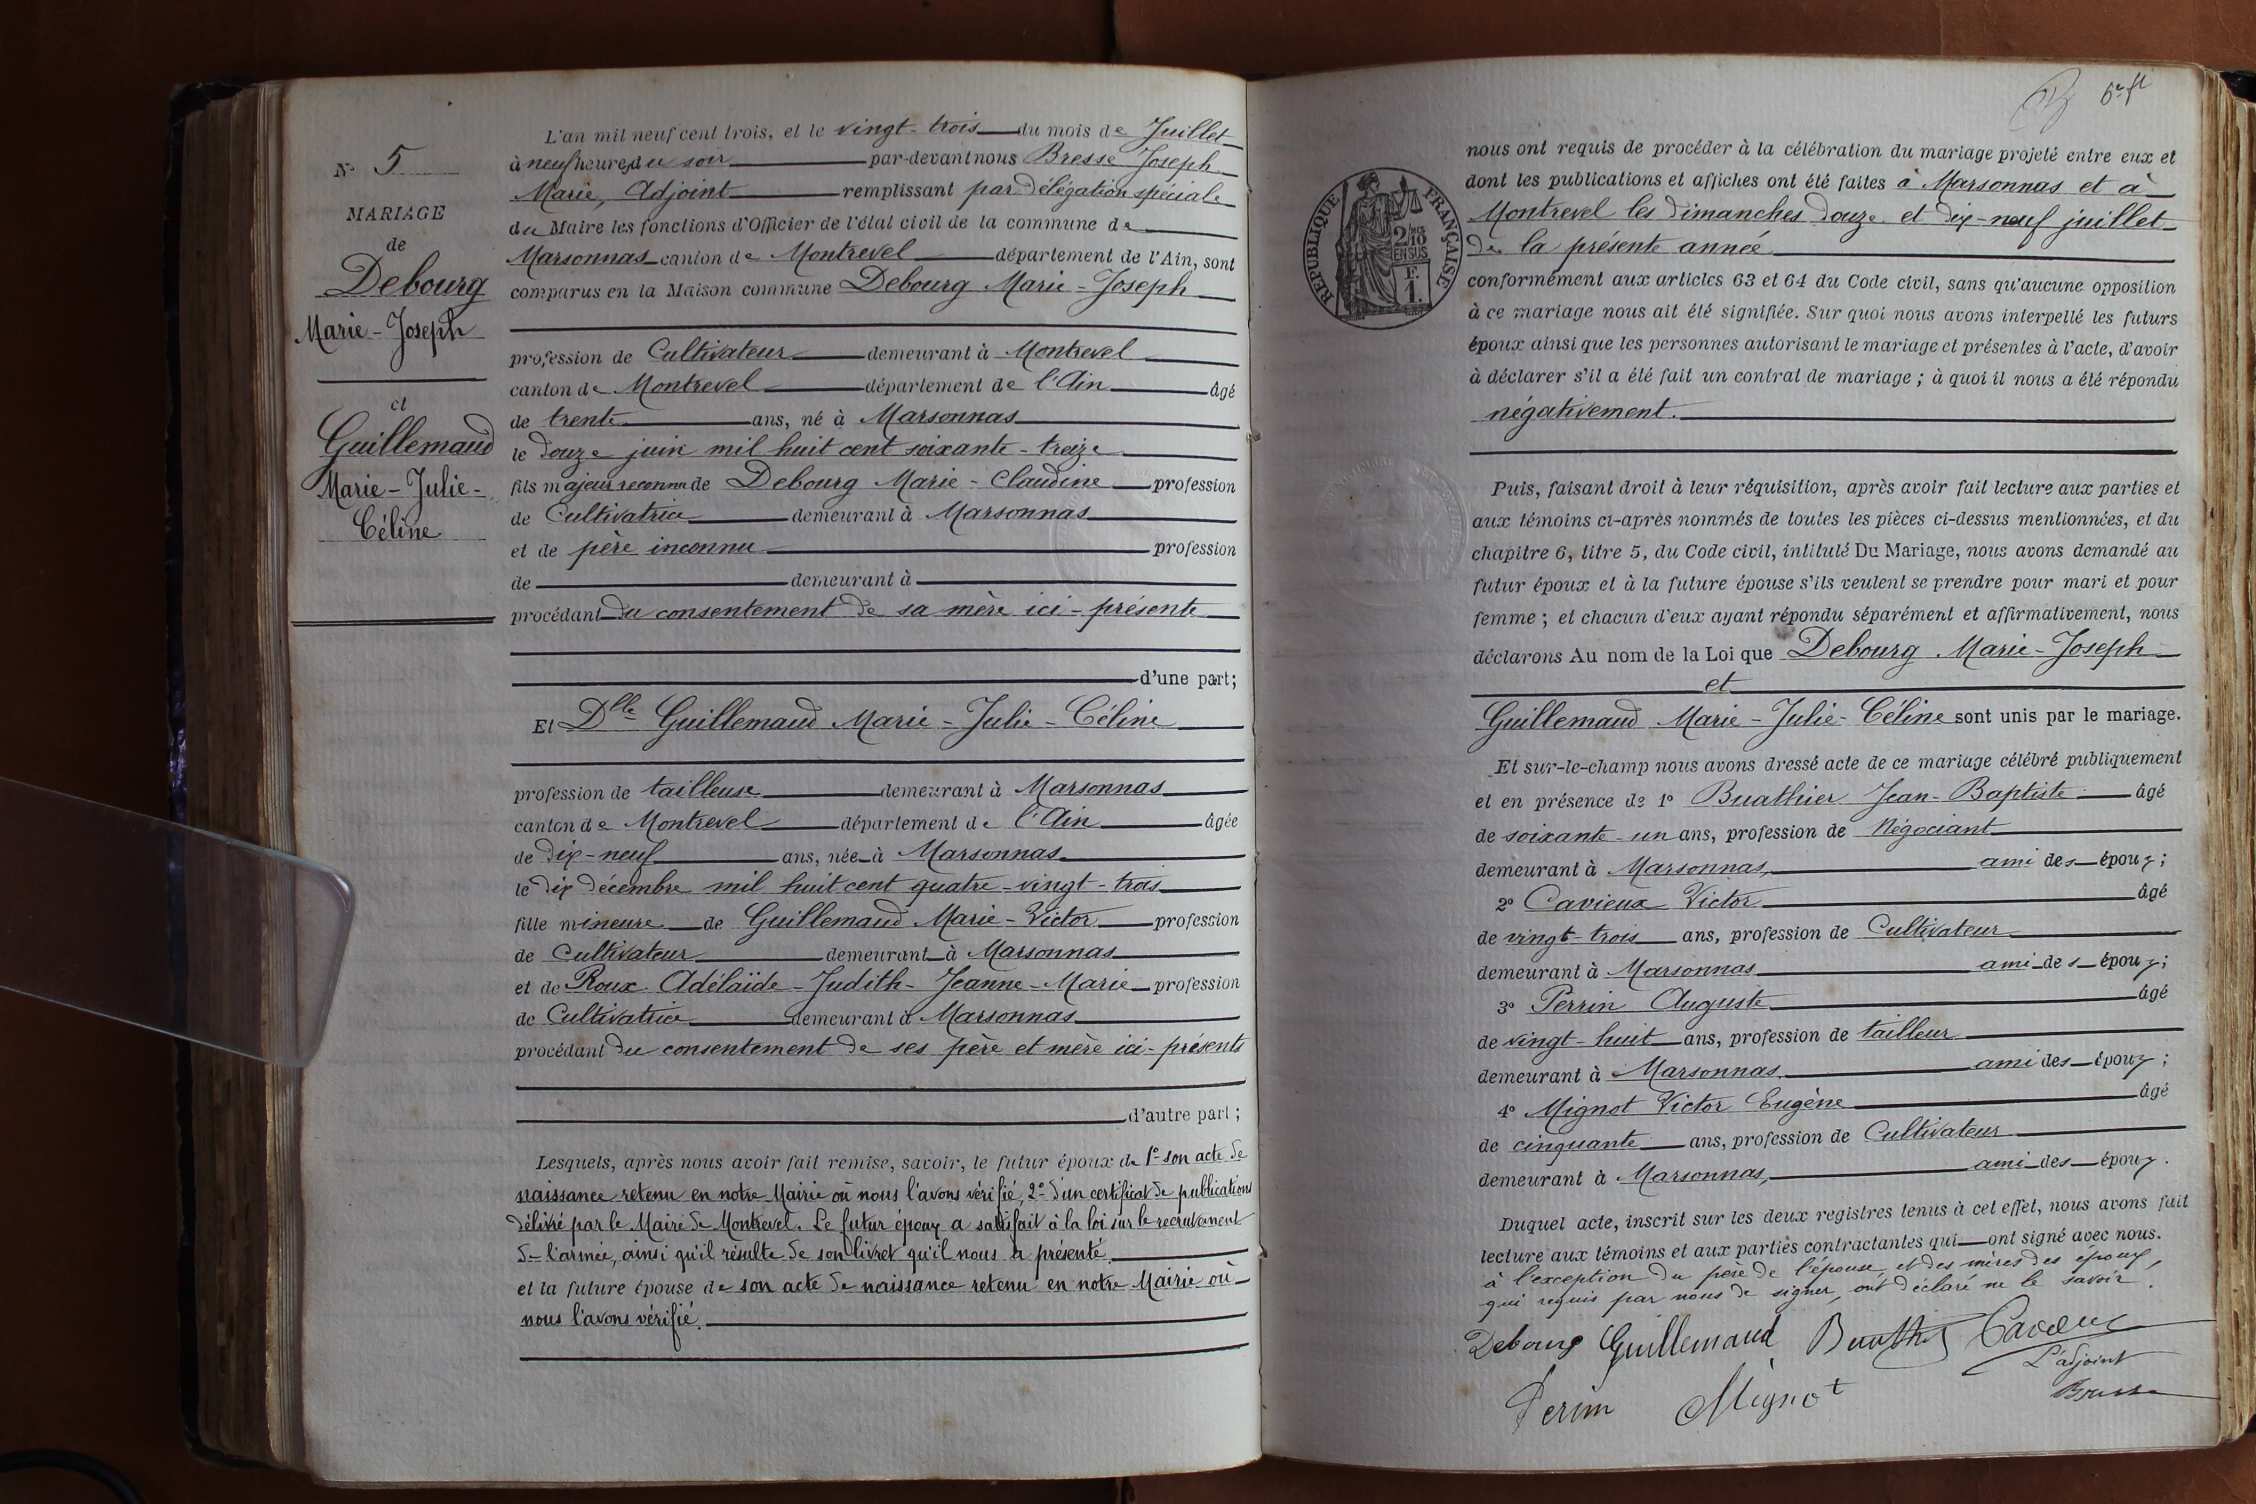 N° 5
MARIAGE
de
Debourg
Marie-Joseph
et
Guillemaud
Marie-Julie-
Céline
L'an mil neuf cent trois, et le vingt-trois du mois de Juillet
à neuf heures du soir par-devant nous Bresse Joseph
Marie, Adjoint remplissant par délégation spéciale
du Maire les fonctions d'Officier de l'état civil de la commune de
Marsonnas canton de Montrevel département de l'Ain, sont
comparus en la Maison commune Debourg Marie-Joseph
profession de Cultivateur demeurant à Montrevel
canton de Montrevel département de l'Ain âgé
de trente ans, né à Marsonnas
le douze juin mil huit cent soixante-treize
fils majeur reconnu de Debourg Marie-Claudine profession
de Cultivatrice demeurant à Marsonnas
et de père inconnu profession
de demeurant à
procédant du consentement de sa mère ici-présente
d'une part;
Et Dlle Guillemaud Marie-Julie-Céline
profession de tailleuse demeurant à Marsonnas
canton de Montrevel département de l'Ain âgée
de dix-neuf ans, née à Marsonnas
le dix décembre mil huit cent quatre-vingt-trois
fille mineure de Guillemaud Marie-Victor profession
de Cultivateur demeurant à Marsonnas
et de Roux Adélaïde-Judith-Jeanne-Marie profession
de Cultivatrice demeurant à Marsonnas
procédant du consentement de ses père et mère ici-présents
d'autre part;
Lesquels, après nous avoir fait remise, savoir, le futur époux de 1° son acte de
naissance retenu en notre Mairie où nous l'avons vérifié, 2° d'un certificat de publications
délivré par le Maire de Montrevel. Le futur époux a satisfait à la loi sur le recrutement
de l'armée, ainsi qu'il résulte de son livret qu'il nous a présenté.
et la future épouse de son acte de naissance retenu en notre Mairie où
nous l'avons vérifié.
nous ont requis de procéder à la célébration du mariage projeté entre eux et
dont les publications et affiches ont été faites à Marsonnas et à
Montrevel les dimanches douze et dix-neuf juillet
de la présente année
conformément aux articles 63 et 64 du Code civil, sans qu'aucune opposition
à ce mariage nous ait été signifiée. Sur quoi nous avons interpellé les futurs
époux ainsi que les personnes autorisant le mariage et présentes à l'acte, d'avoir
à déclarer s'il a été fait un contrat de mariage; à quoi il nous a été répondu
négativement.
RÉPUBLIQUE FRANÇAISE
2/10
EN SUS
F.
1.
Puis, faisant droit à leur réquisition, après avoir fait lecture aux parties et
aux témoins ci-après nommés de toutes les pièces ci-dessus mentionnées, et du
chapitre 6, titre 5, du Code civil, intitulé Du Mariage, nous avons demandé au
futur époux et à la future épouse s'ils veulent se prendre pour mari et pour
femme; et chacun d'eux ayant répondu séparément et affirmativement, nous
déclarons Au nom de la Loi que Debourg Marie-Joseph
et
Guillemaud Marie-Julie-Céline sont unis par le mariage.
Et sur-le-champ nous avons dressé acte de ce mariage célébré publiquement
et en présence de 1° Buathier Jean-Baptiste âgé
de soixante-un ans, profession de Négociant
demeurant à Marsonnas, ami des époux;
2° Cavieux Victor âgé
de vingt-trois ans, profession de Cultivateur
demeurant à Marsonnas ami des époux;
3° Perrin Auguste âgé
de vingt-huit ans, profession de tailleur
demeurant à Marsonnas ami des époux;
4° Mignot Victor Eugène âgé
de cinquante ans, profession de Cultivateur
demeurant à Marsonnas, ami des époux.
Duquel acte, inscrit sur les deux registres tenus à cet effet, nous avons fait
lecture aux témoins et aux parties contractantes qui ont signé avec nous.
à l'exception du père de l'épouse et des mères des époux,
qui requis par nous de signer, ont déclaré ne le savoir.
Debourg Guillemaud Buathier
L'adjoint
Perrin Mignot Bresse